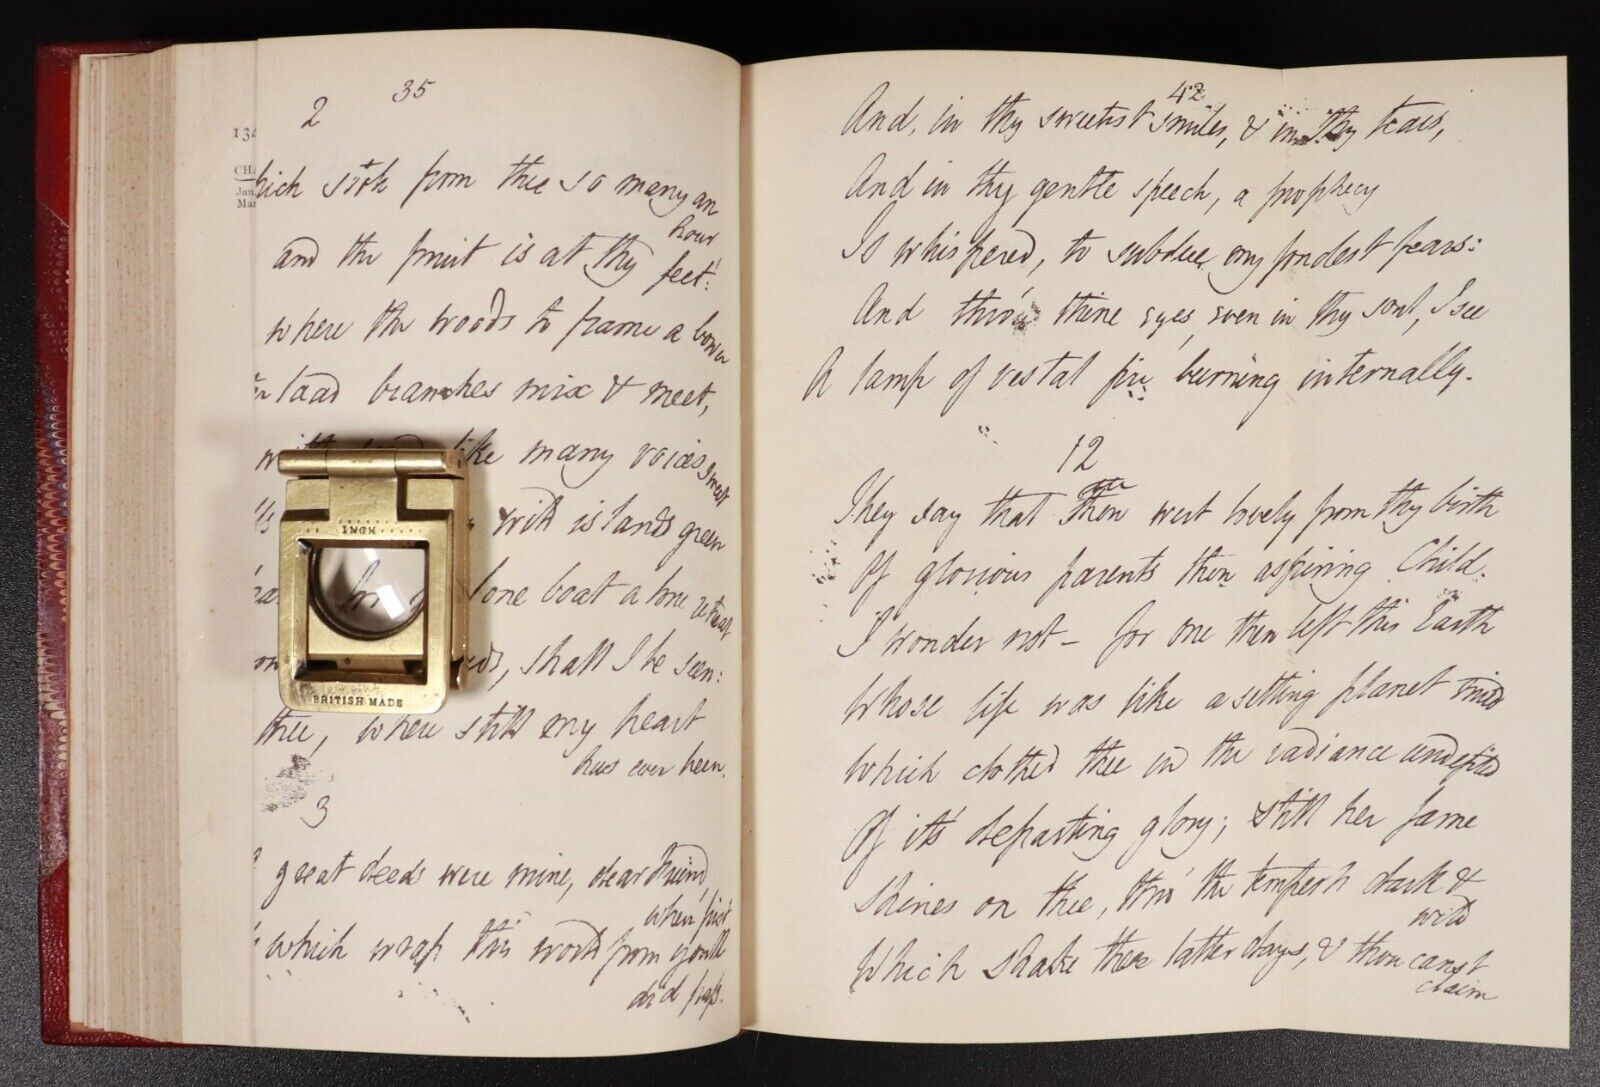 134
CHA
Jan
Mar
2
35
hich took from thee so many an
hour
and the fruit is at thy feet!
where the woods to frame a bower
laced branches mix & meet,
like many voices sweet
wild islands green
lone boat a lone retreat
shall I be seen:
thee, where still my heart
has ever been.
3
great deeds were mine, dear Friend,
when first
which wrap this world from youth
did pass.
INCH
BRITISH MADE
42
And, in thy sweetest smiles, & in thy tears,
And in thy gentle speech, a prophecy
Is whispered, to subdue my fondest fears:
And thro' thine eyes, even in thy soul, I see
A lamp of vestal fire burning internally.
12
They say that thou wert lovely from thy birth
Of glorious parents thou aspiring Child.
I wonder not – for one then left this Earth
Whose life was like a setting planet mild
Which clothed thee in the radiance undefiled
Of it's departing glory; still her fame
Shines on thee, thro' the tempest dark &
wild
Which shake these latter days, & thou canst
claim